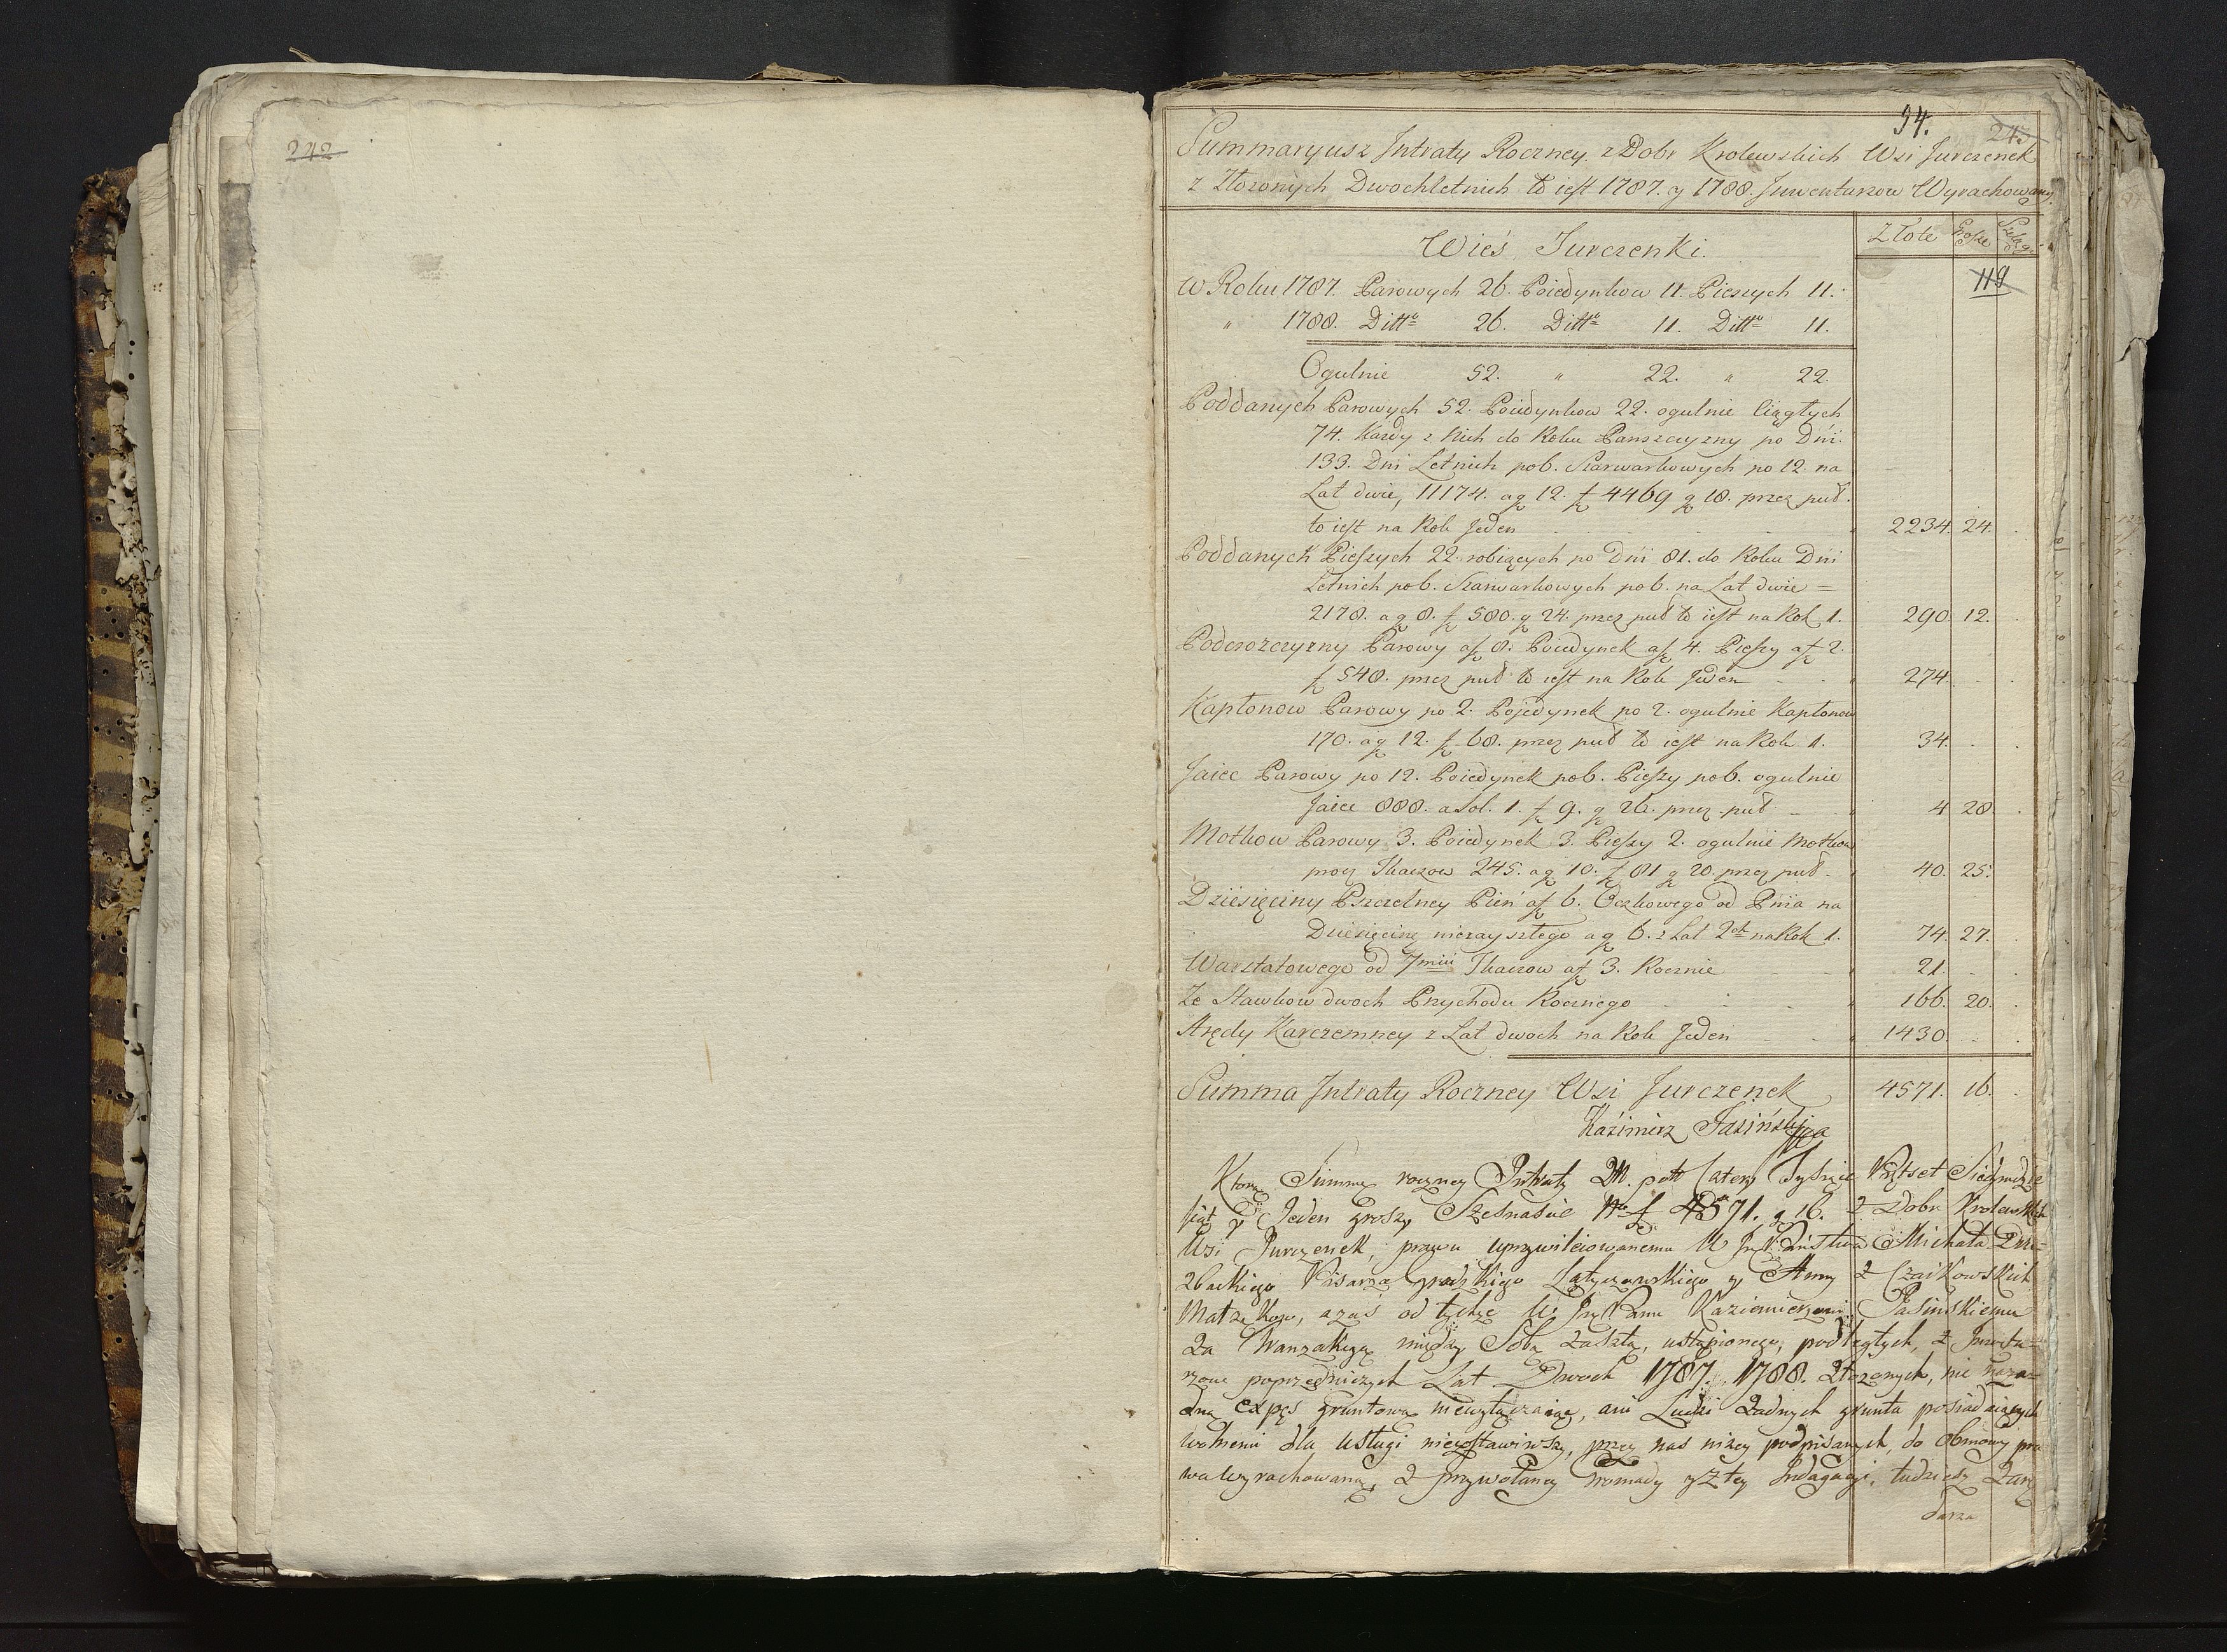 242
94. 243
Summaryusz Intraty Roczney z Dobr Krolewskich Wsi Jurczenek
z Złożonych Dwochletnich to iest 1787. y 1788. Inwentarzow Wyrachowany
Wieś Jurczenki. Złote Grosze Szelągi
119
W Roku 1787. Parowych 26. Poiedynkow 11. Pieszych 11.
" 1788. Ditto 26. Ditto 11. Ditto 11.
Ogulnie 52. " 22. " 22.
Poddanych Parowych 52. Poiedynkow 22. ogulnie Ciągłych
74. Każdy z Nich do Roku Panszczyzny po Dni
133. Dni Letnich po 6. Szarwarkowych po 12. na
Lat dwie, 11174. a g 12. f 4469 g 18. przez puł.
to iest na Rok Jeden " 2234. 24.
Poddanych Pieszych 22. robiących po Dni 81. do Roku Dni
Letnich po 6. Szarwarkowych po 6. na Lat dwie =
2178. a g 8. f 580. g 24. przez puł to iest na Rok 1. 290. 12.
Podorozczyzny Parowy a f 8. Poiedynek a f 4. Pieszy a f 2.
f 548. przez puł to iest na Rok Jeden " 274.
Kapłonow Parowy po 2. Pojedynek po 2. ogulnie Kapłonow
170. a g 12. f 68. przez puł to iest na Rok 1. 34.
Jaiec Parowy po 12. Poiedynek po 6. Pieszy po 6. ogulnie
Jaiec 888. a Sol. 1. f 9. g 26. przez puł " 4 28.
Motkow Parowy 3. Poiedynek 3. Pieszy 2. ogulnie Motkow
procz Tkaczow 245. a g 10. f 81 g 20. przez puł. " 40. 25.
Dziesięciny Pszczelney Pień a f 6. Oczkowego od Pnia na
Dziesięcinę niezayszłego a g 6. z Lat 2ch na Rok 1. 74. 27.
Warstatowego od 7miu Tkaczow a f 3. Rocznie " 21.
Ze Stawkow dwoch Przychodu Rocznego " 166. 20.
Arędy Karczemney z Lat dwoch na Rok Jeden " 1430.
Summa Intraty Roczney Wsi Jurczenek 4571. 16.
Kazimierz Jasiński
Ktorą Summę roczney Intraty Cztery Tysiące Pięćset Siedmdzie
siąt y Jeden groszy Szesnaście Nro f 4571. g 16. z Dobr Krolewskich
Wsi Jurczenek, prawu uprzywileiowanemu Michała
Pisarza Grodzkiego Latyczowskiego y Anny z Czaikowskich
Małżąkow, a zaś od tychże Kazimierzowi Jasinskiemu
Za Tranzakcyą między Sobą zaszłą, ustąpionego, podległych, z Inwenta
rzow poprzedniczych Lat Dwoch 1787. 1788. Złożonych, nic na żad
dną expęs gruntową niewyłączaiąc, ani Ludzi żadnych grunta posiadaiących
wolnemi dla usługi niezostawiwszy, przez nas niżey podpisanych, do Obmowy pra
wa wyrachowaną, z przywołaney Gromady y z tey Indagacyi, tudziesz Zarę
darza